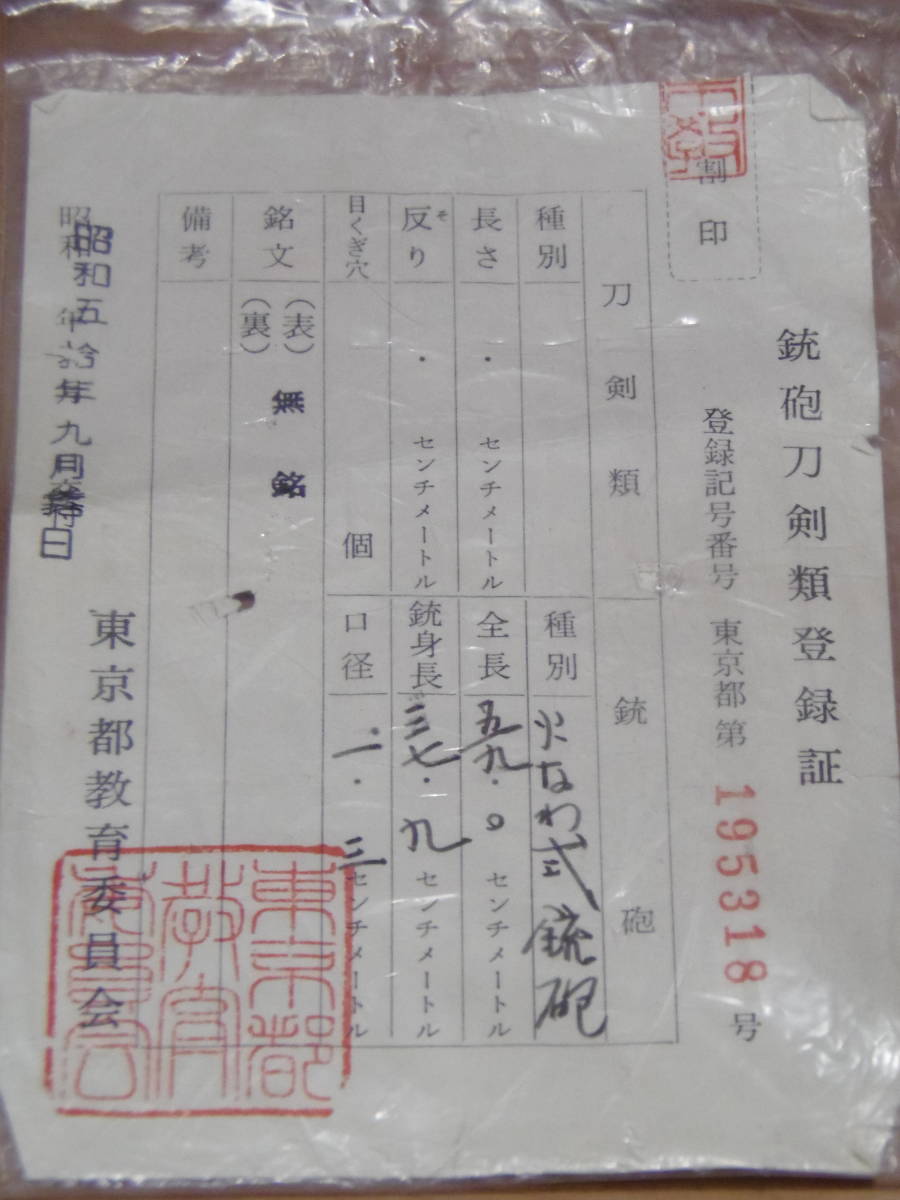 銃砲刀剣類登録証
割印
登録記号番号 東京都第 195318 号
刀剣類
銃砲
種別
種別 火なわ式銃砲
長さ ・ センチメートル
全長 五九・〇 センチメートル
反り ・ センチメートル
そ
銃身長 三七・九 センチメートル
目くぎ穴 個
口径 一・三 センチメートル
銘文 (表) 無銘
(裏)
備考
昭和 年
昭和五拾年九月
日
東京都教育委員会
東京都
教育
委員会